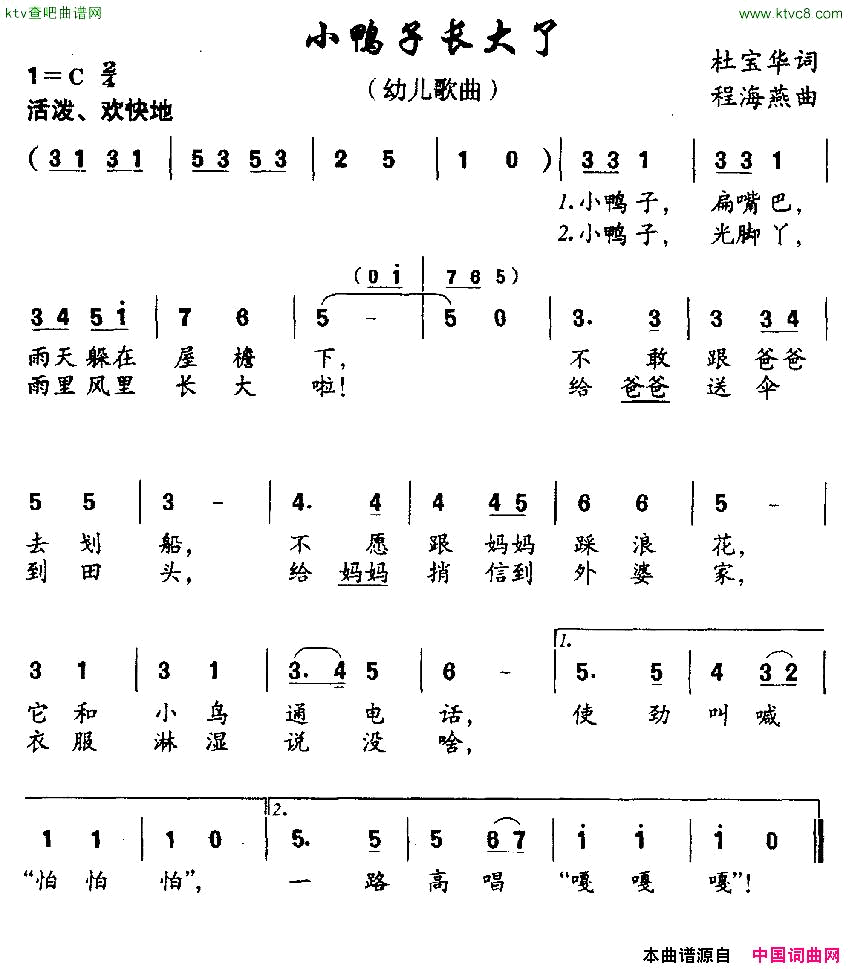 ktv查吧曲谱网 www.ktvc8.com
小鸭子长大了
1=C 2/4 (幼儿歌曲) 杜宝华词
活泼、欢快地 程海燕曲
( 3 1 3 1 | 5 3 5 3 | 2 5 | 1 0 ) | 3 3 1 | 3 3 1 |
1.小鸭子, 扁嘴巴,
2.小鸭子, 光脚丫,
(0 i | 7 6 5)
3 4 5 i | 7 6 | 5 - | 5 0 | 3. 3 | 3 3 4 |
雨天躲在屋檐下, 不敢跟爸爸
雨里风里长大啦! 给爸爸送伞
5 5 | 3 - | 4. 4 | 4 4 5 | 6 6 | 5 - |
去划船, 不愿跟妈妈踩浪花,
到田头, 给妈妈捎信到外婆家,
1.
3 1 | 3 1 | 3. 4 5 | 6 - | 5. 5 | 5 3 2 |
它和小鸟通电话, 使劲叫喊
衣服淋湿说没啥,
2.
1 1 | 1 0 | 5. 5 | 5 6 7 | i i | i 0 ‖
“怕怕怕”, 一路高唱“嘎嘎嘎”!
本曲谱源自 中国词曲网